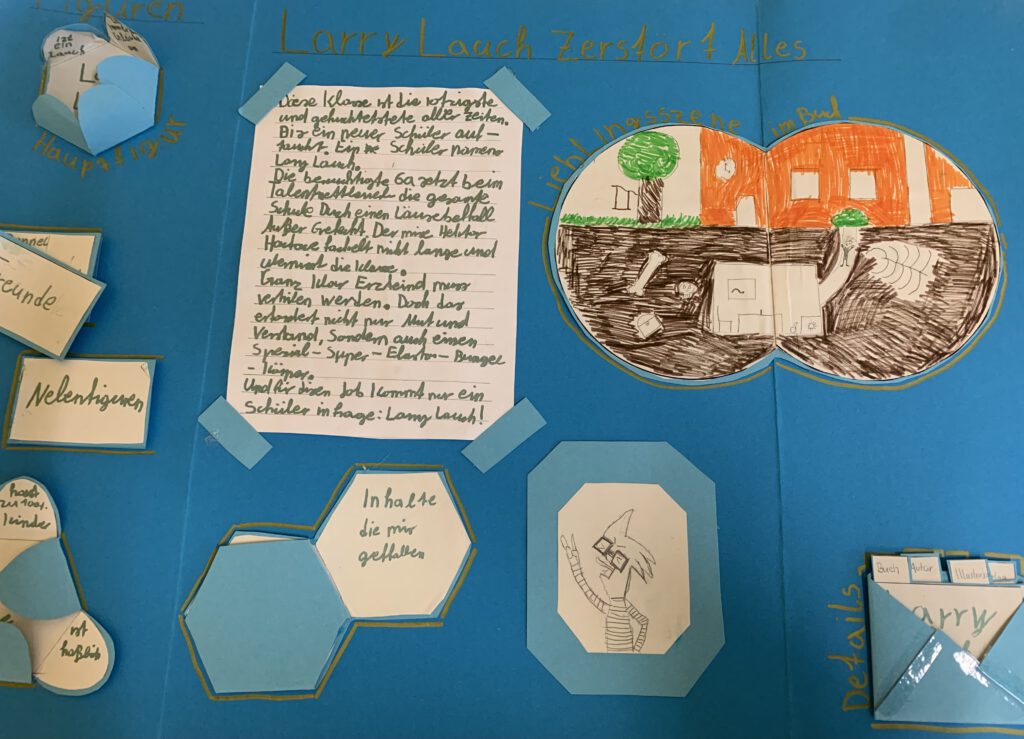 Figuren
Larry Lauch Zerstört Alles
ist
ein
Lauch
Hauptfigur
Diese Klasse ist die rotzigste
und gefürchtetste aller zeiten.
Bis ein neuer Schüler auf-
taucht. Ein Schüler namens
Larry Lauch.
Die berüchtigte 6a setzt beim
Talentwettbewerb die gesamte
Schule Durch einen Läusebefall
Außer Gefecht. Der miese Hektor
fackelt nicht lange und
die Klasse.
Ganz klar Erzfeind muss
werden. Doch das
erfordert nicht nur Mut und
Verstand, Sondern auch einen
Spezial-Super-Elasto-Bungee
-körper.
Und für disen Job kommt nur ein
Schüler in frage: Larry Lauch!
Lieblingsszene im Buch
Freunde
Nebenfiguren
hasst
zu 100%
kinder
ist
häßlich
Inhalte
die mir
gefallen
Details
Buch
Autor
Larry